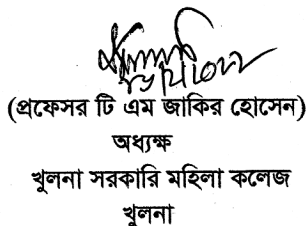 (প্রফেসর টি এম জাকির হোসেন)
অধ্যক্ষ
খুলনা সরকারি মহিলা কলেজ
খুলনা